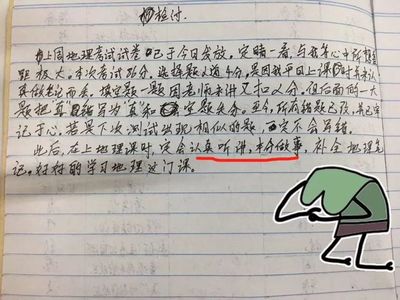 检付.
上周地理考试试卷已于今日发放.定睛一看,与我心中所想差
距极大.本次考试86分,选择题2道4分,是因我平日上课时未认
真做笔记而丢.填空题一题因老师未讲又扣2分.但后面的一大
题把"直"错写为"真"和空题失分.至今,所有错题已改,并已牢
记于心.若果下次测试出现相似的题,一定不会写错.
此后,在上地理课时,定会认真听讲,本分做事,补全地理笔
记.好好的学习地理这门课.